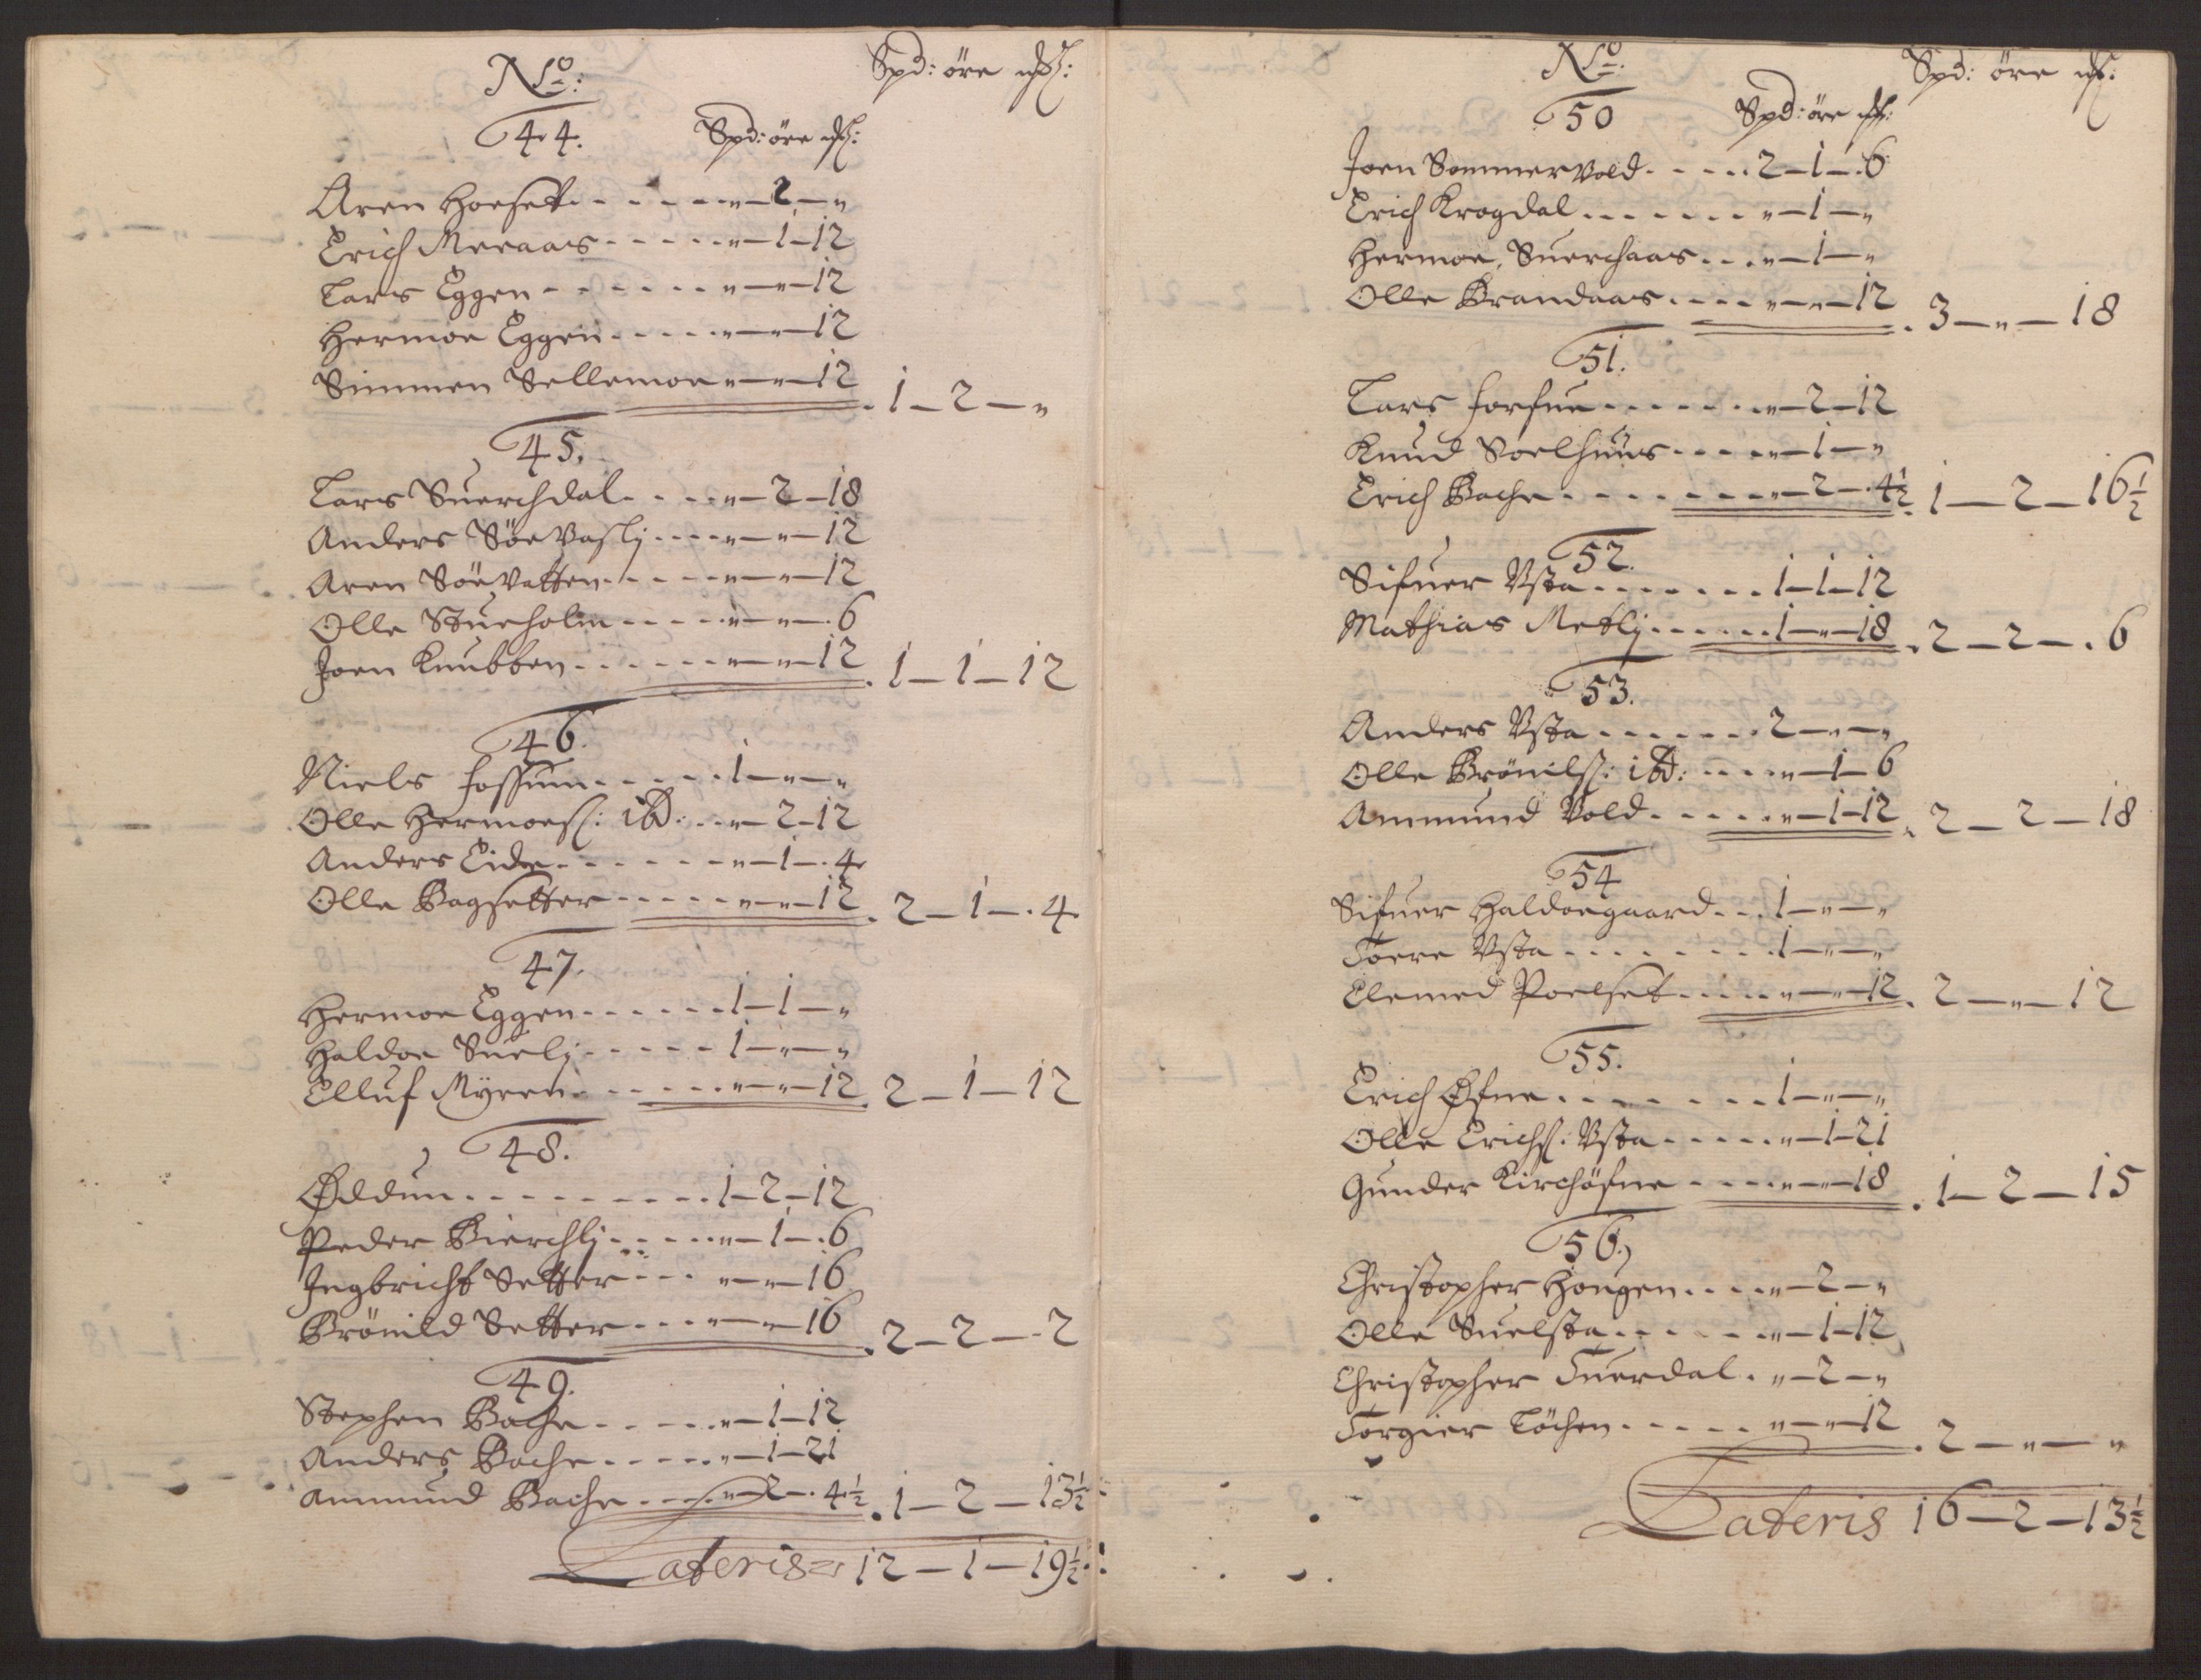 No:
Spd: øre
44.
Spd: øre
Aren Hoeset . . . . . . „ — 2 — „
Erich Meraas . . . . . „ — 1 — 12
Lars Eggen . . . . . . . „ — „ — 12
Hermoe Eggen . . . . . „ — „ — 12
Simmen Sellemoe „ — „ — 12 . 1 — 2 — „
45.
Lars Suerchdal . . . . „ — 2 — 18
Anders Søevaslj . . . . „ — „ — 12
Aren Søevatten . . . . . „ — „ — 12
Olle Stueholm . . . . . „ — „ — . 6
Joen Knubben . . . . . . „ — „ — 12 . 1 — 1 — 12
46.
Niels Fossum . . . . . . 1 — „ — „
Olle Hermoeß: ibd: . . „ — 2 — 12
Anders Eide . . . . . . . „ — 1 — . 4
Olle Bagsetter . . . . . „ — „ — 12 . 2 — 1 — . 4
47.
Hermoe Eggen . . . . . . 1 — 1 — „
Haldoe Suelj . . . . . 1 — „ — „
Elluf Myren . . . . . . „ — „ — 12 . 2 — 1 — 12
48.
Øddun . . . . . . . . . . 1 — 2 — 12
Peder Bierchlj . . . . . „ — 1 — . 6
Ingbricht Setter . . . „ — „ — 16
Brønild Setter . . . „ — „ — 16 . 2 — 2 — . 2
49.
Stephen Bache . . . . . „ — 1 — 12
Anders Bache . . . . . „ — 1 — 21
Ammund Bache . . . . „ — 2 — . 4½ . 1 — 2 — 13½
Lateris 12 — 1 — 19½
No:
Spd: øre
50
Spd: øre
Joen Sommervold . . . . . 2 — 1 — . 6
Erich Krogdal . . . . . . . „ — 1 — „
Hermoe Suerchaas . . . „ — 1 — „
Olle Brandaas . . . . . „ — „ — 12 . 3 — „ — 18
51.
Lars Forsue . . . . . . . „ — 2 — 12
Knud Soelhuus . . . . . „ — 1 — „
Erich Bache . . . . . . . . „ — 2 — . 4½ . 1 — 2 — 16½
52.
Sifuer Vsta . . . . . . . 1 — 1 — 12
Mathias Metlj . . . . . . 1 — „ — 18 . 2 — 2 — . 6
53.
Anders Vsta . . . . . . . 2 — „ — „
Olle Brønilß: ibd: . . . . „ — 1 — 6
Ammund Vold . . . . . . „ — 1 — 12 . 2 — 2 — 18
54
Sifuer Haldoegaard . . . 1 — „ — „
Toere Vsta . . . . . . . . 1 — „ — „
Clemed Poelset . . . . . „ — „ — 12 . 2 — „ — 12
55.
Erich Øfne . . . . . . . . 1 — „ — „
Olle Erichß: Vsta . . . . . „ — 1 — 21
Gunder Kirchøfne . . . . „ — „ — 18 . 1 — 2 — 15
56.
Christopher Hougen . . . . „ — 2 — „
Olle Suelsta . . . . . . „ — 1 — 12
Christopher Tuerdal . „ — 2 — „
Torgier Løchen . . . . . „ — „ — 12 . 2 — „ — „
Lateris 16 — 2 — 13½